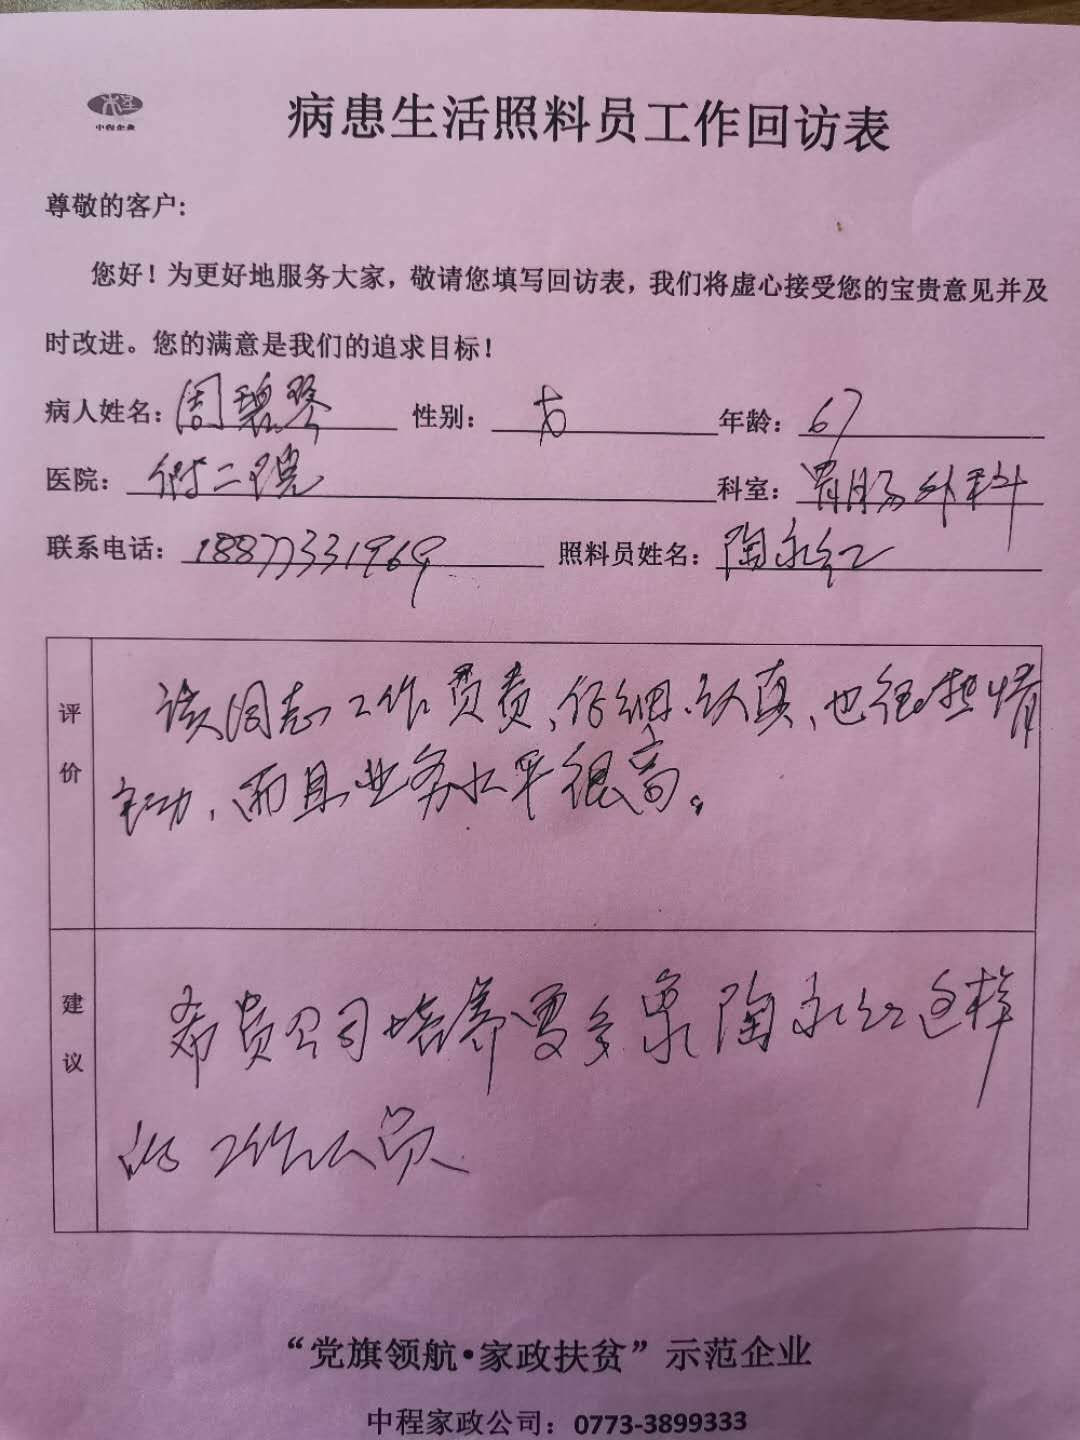 中程企业
病患生活照料员工作回访表
尊敬的客户:
您好！为更好地服务大家，敬请您填写回访表，我们将虚心接受您的宝贵意见并及
时改进。您的满意是我们的追求目标！
病人姓名：周碧琴 性别： 年龄：67
医院：附二院 科室：胃肠外科
联系电话：18877331969 照料员姓名：陶永红
评价
该同志工作负责、仔细、认真、也很热情
主动，而且业务水平很高。
建议
希贵公司培养更多象陶永红这样
的工作人员
“党旗领航·家政扶贫”示范企业
中程家政公司：0773-3899333